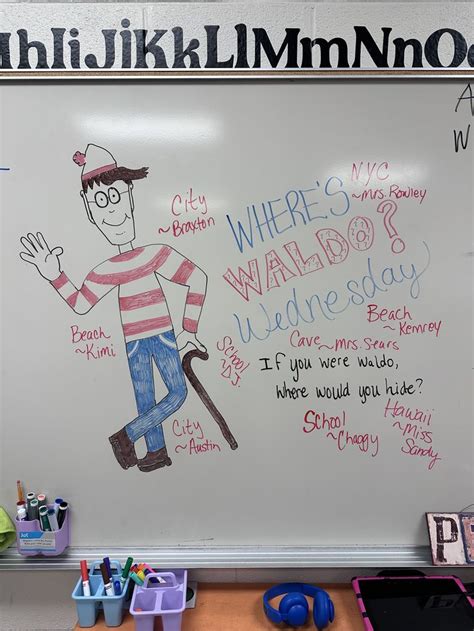 hIiJjKkLlMmNnOo
A
W
NYC
~Mrs. Rowley
City
~Braxton
WHERE'S
WALDO?
Wednesday
Beach
~Kemrey
Beach
~Kimi
Cave ~Mrs. Sears
School
If you were Waldo,
where would you hide?
School
~Chaggy
Hawaii
~Miss
Sandy
City
~Austin